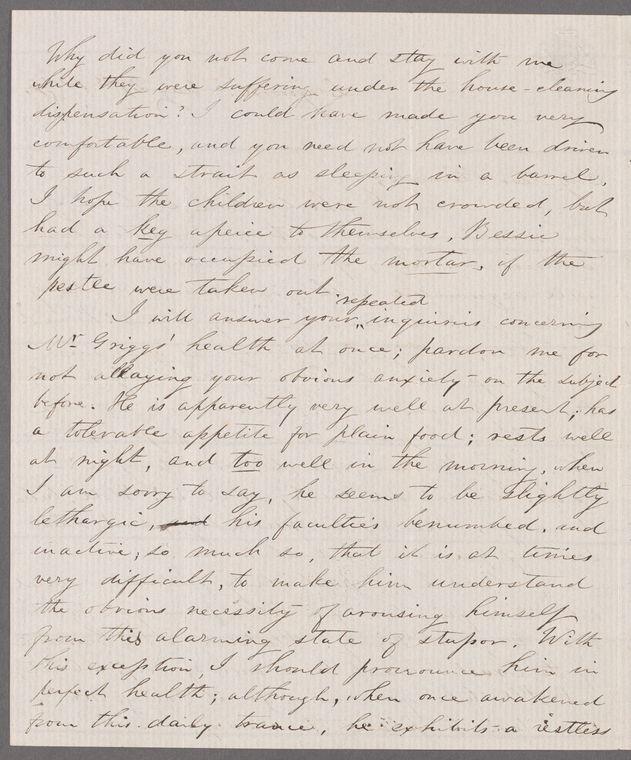 Why did you not come and stay with me
while they were suffering under the house-cleaning
dispensation? I could have made you very
comfortable, and you need not have been driven
to such a strait as sleeping in a barrel.
I hope the children were not crowded, but
had a key apeice to themselves, Bessie
might have occupied the mortar, if the
pestle were taken out.
repeated
I will answer your inquiries concerning
Mr Griggs' health at once; pardon me for
not allaying your obvious anxiety on the subject
before. He is apparently very well at present; has
a tolerable appetite for plain food; rests well
at night, and too well in the morning, when
I am sorry to say, he seems to be slightly
lethargic, and his faculties benumbed, and
inactive; so much so, that it is at times
very difficult, to make him understand
the obvious necessity of arousing himself
from this alarming state of stupor. With
this exception, I should pronounce him in
perfect health; although, when once awakened
from this daily trance, he exhibits a restless